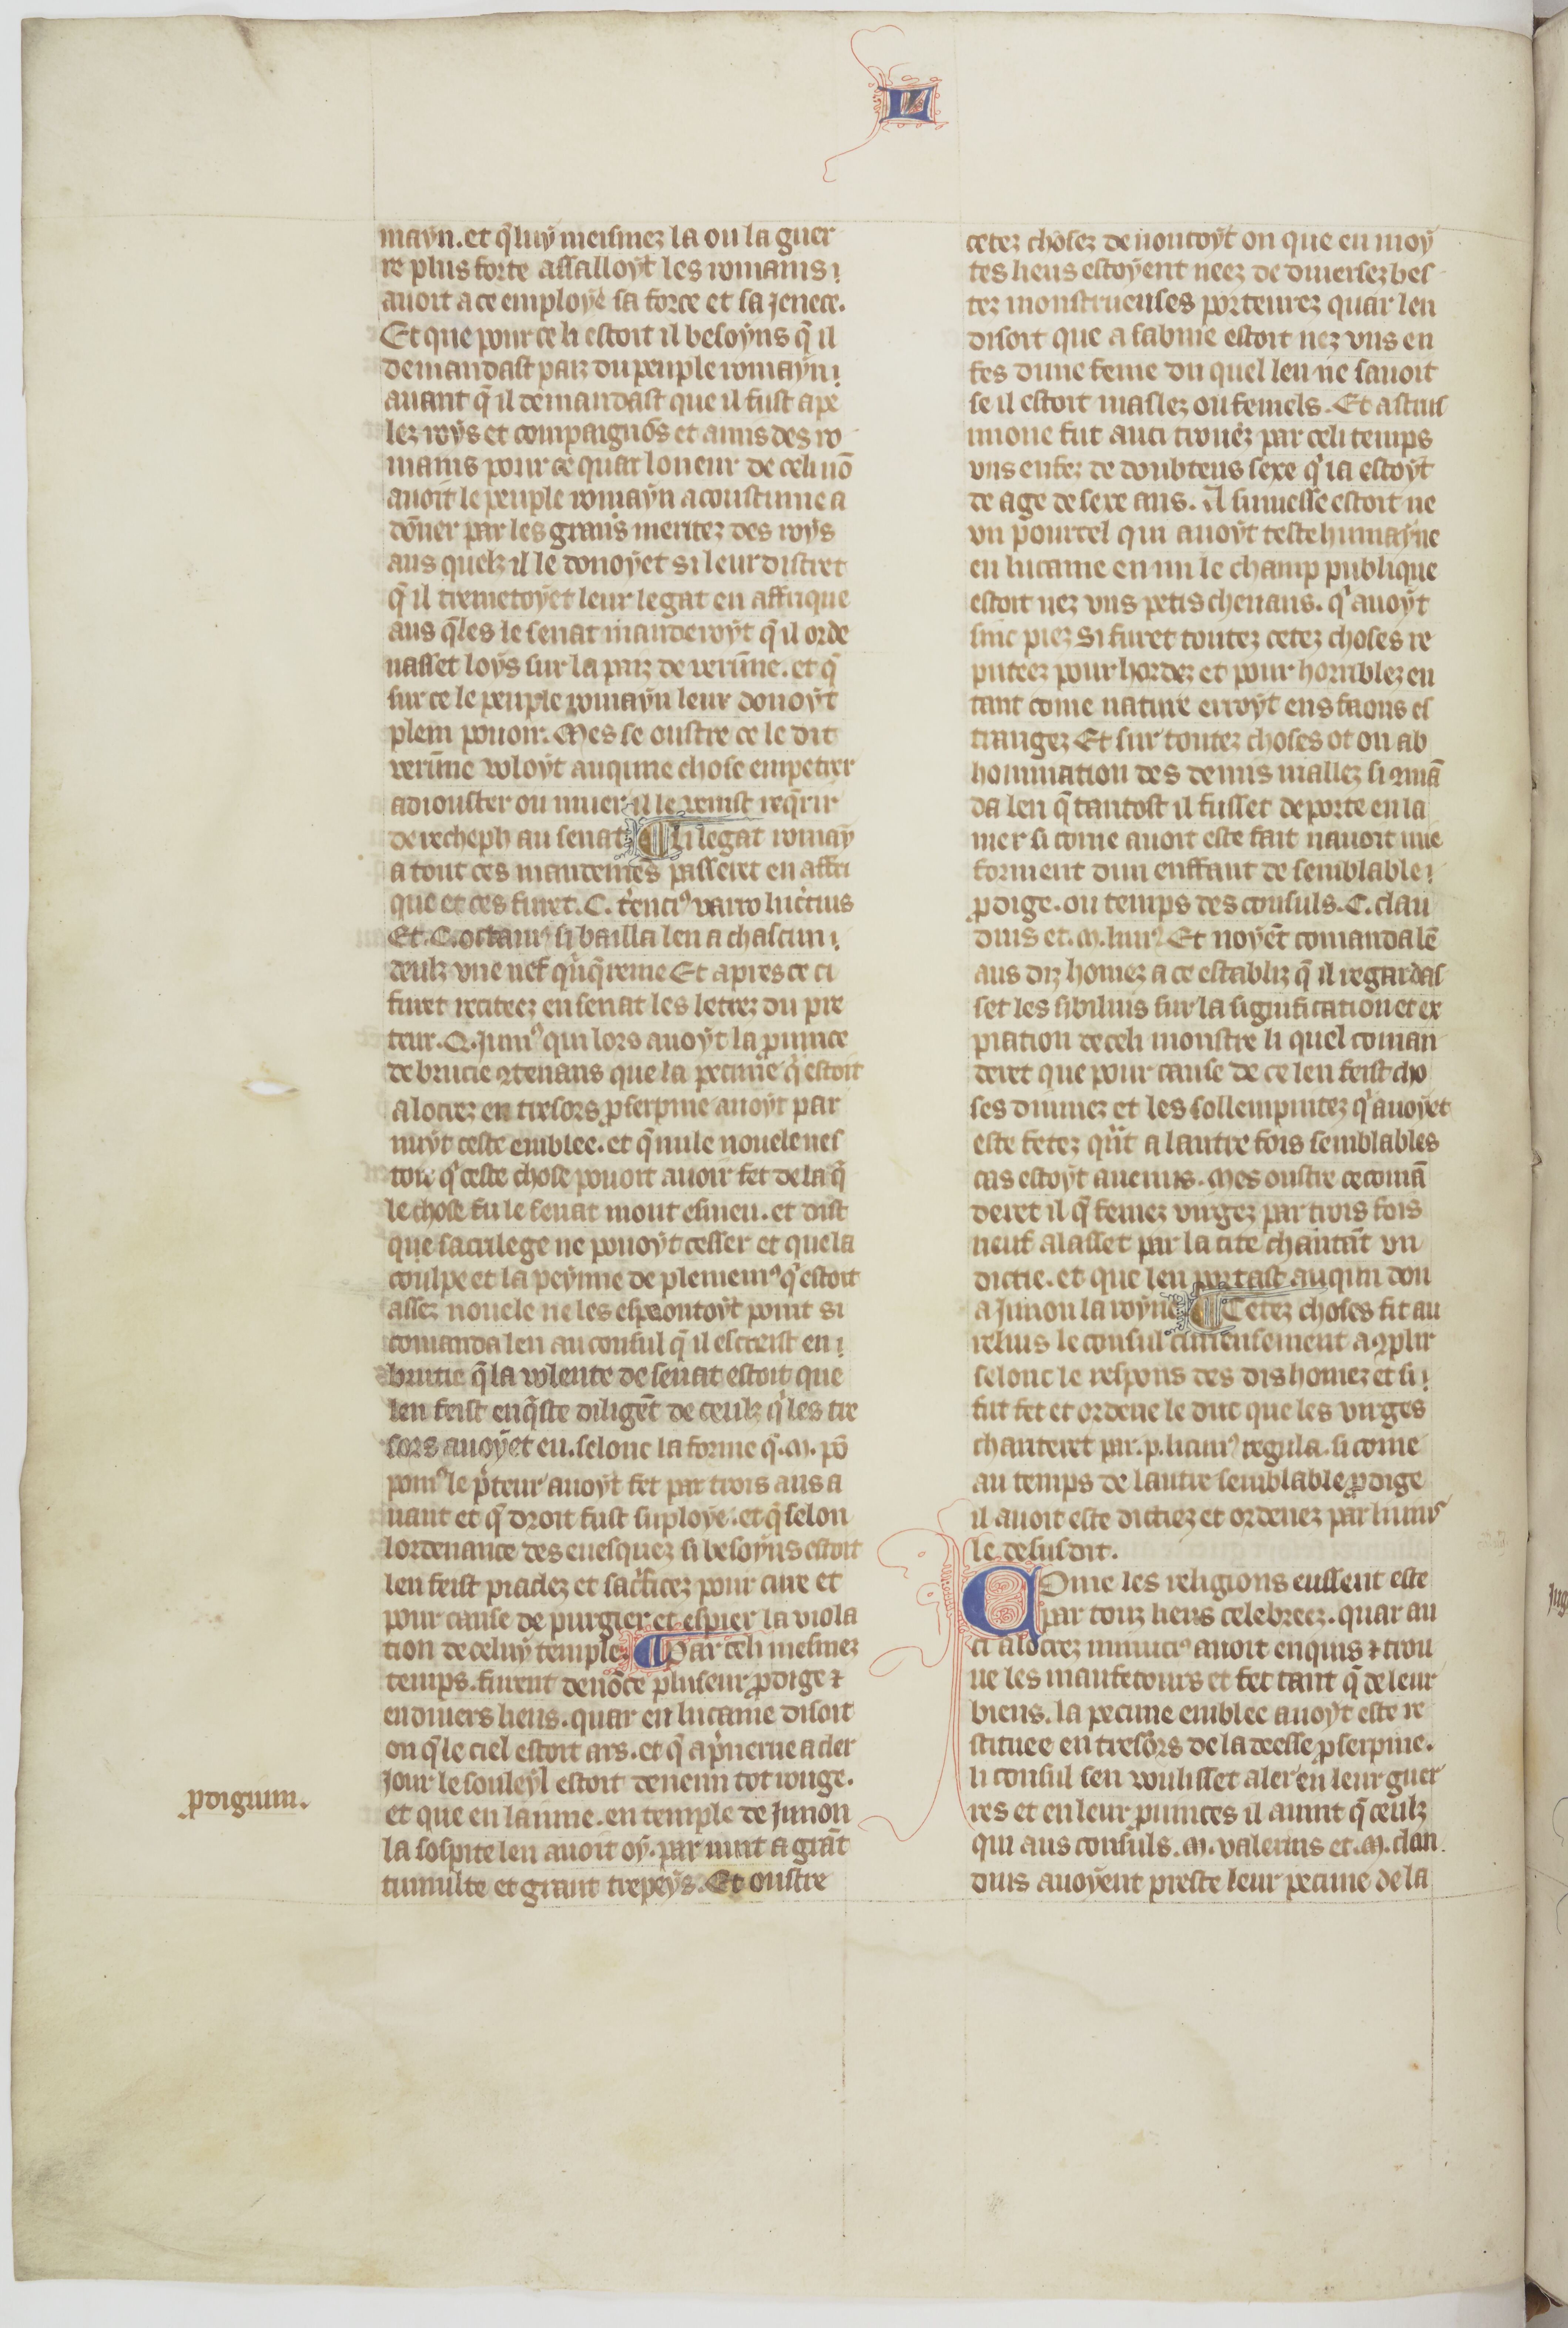 L
mayn. et q̃ luy meismez la ou la guer
re plus forte assalloyt les romains
auoit a ce employe sa force et sa jenece.
Et que pour ce li estoit il besoyns q̃ il
demandast paiz du peuple romayn
auant q̃ il demandast que il fust ape
lez roys et compaignõs et amis des ro
mains pour ce quar loneur de celi nõ
auoit le peuple romayn acoustume a
dõner par les grans meritez des roys
aus quelz il le donoyet si leur distret
q̃ il tremetoyet leur legat en affrique
aus q̃les le senat manderoyt q̃ il orde
nasset loys sur la paiz de vermĩe. et q̃
sur ce le peuple romayn leur donoyt
plein pouoir. Mes se oustre ce le dit
vermĩe voloyt auqune chose empetrer
adiouster ou muer il le venist req̃rir
derecheph au senat ¶ Li legat romay
a tout ces mandemẽs passeret en affri
que et ces furet. C. tẽnciꝰ varro lucrius
Et. C. octauiꝰ si bailla len a chascun
deulz vne nef q̃nq̃reme Et apres ce ci
furet reciteez en senat les letrez du pre
teur. Q. Juniꝰ qui lors auoyt la ꝓuince
de brucie ꝯtenans que la pecune q̃ estoit
a locrez en tresors ꝓserpine auoyt par
nuyt ceste emblee. et q̃ nule nouele nes
toit q̃ ceste chose pouoit auoir fet de la q̃
le chose fu le senat mout esmeu. et dist
que sacrilege ne pouoyt cesser et que la
coulpe et la peynne de pleminiꝰ q̃ estoit
assez nouele ne les espoontoyt point si
comanda len au consul q̃ il escreist en
brutie q̃ la volente de senat estoit que
len feist enq̃ste diligẽt de ceulz q̃ les tre
sors auoyet eu. selonc la forme q̃. M. põ
poniꝰ le p̃teur auoyt fet par trois ans a
uant et q̃ droit fust suploye. et q̃ selon
lordenance des euesquez si besoyns estoit
len feist piaclez et sacrificez pour cure et
pour cause de purgier et espier la viola
tion de celuy temple ¶ Par celi mesmez
temps. furent denõce pluseur ꝓdige ⁊
en diuers lieus. quar en lucanie disoit
on q̃ le ciel estoit ars. et q̃ a p̃uerne a cler
jour le souleyl estoit deuenu tot rouge.
et que en lanune. en temple de Junon
la sospite len auoit oy. par nuit a grãt
tumulte et grant trepeys. Et oustre
ꝓdigium.
cetez chosez denontoyt on que en moy
tes lieus estoyent neez de diuersez bes
tez monstrueuses porteurez quar len
disoit que a sabine estoit nez vns en
fes dune feme du quel len ne sauoit
se il estoit maslez ou femels. Et a
fut auci trouez par celi temps
vns enfez de doubteus sexe q̃ ia estoyt
de age de seze ans. A sinuesse estoit ne
vn pourcel qui auoyt teste humayne
en lucanie en un le champ publique
estoit nez vns petis cheuaus. q̃ auoyt
sinc piez Si furet toutez cetez choses re
puteez pour hordez et pour horriblez en
tant come nature erroyt ens faons es
trangez Et sur toutez choses ot on ab
hominacion des demis mallez si ꝯmã
da len q̃ tantost il fusset deporte en la
mer si come auoit este fait nauoit mie
forment dun enffant de semblable
ꝓdige. ou temps des consuls. C. clau
dius et. M. liuiꝰ. Et noyẽt comanda lẽ
aus diz homez a ce establiz q̃ il regardas
set les sibilins sur la signification et ex
piation de celi monstre li quel coman
deret que pour cause de ce len feist cho
ses diuinez et les sollempnitez q̃ auoyet
este fetez qñt a lautre fois semblables
cas estoyt auenus. Mes oustre ce comã
deret il q̃ femez virgez par trois fois
neuf alasset par la cite chantãt vn
dictie. et que len portast auqun don
a Junon la royne ¶ Cetez choses fit au
relius le consul curieusement acꝯplir
selonc le respons des dis homez et si
fut fet et ordene le duc que les virges
chanteret par. p. liciniꝰ tegula. si come
au temps de lautre semblable ꝓdige
il auoit este dictiez et ordenez par liuiꝰ
le desusdit.
Come les religions eussent este
par touz lieus celebreez. quar au
ci a locrez minuciꝰ auoit enquis ⁊ trou
ue les maufetours et fet tant q̃ de leur
biens. la pecune emblee auoyt este re
stituee en tresors de la deesse ꝓserpine.
li consul sen voulisset aler en leur guer
res et en leur ꝓuinces il auint q̃ ceulz
qui aus consuls. M. valerius et. M. clau
dius auoyent preste leur pecune de la